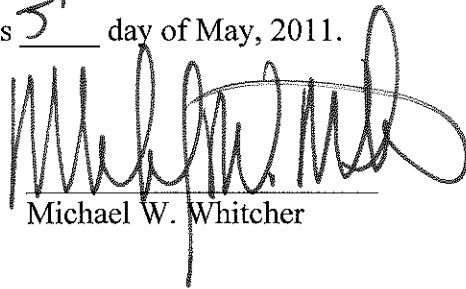 s 5 day of May, 2011.
Michael W. Whitcher